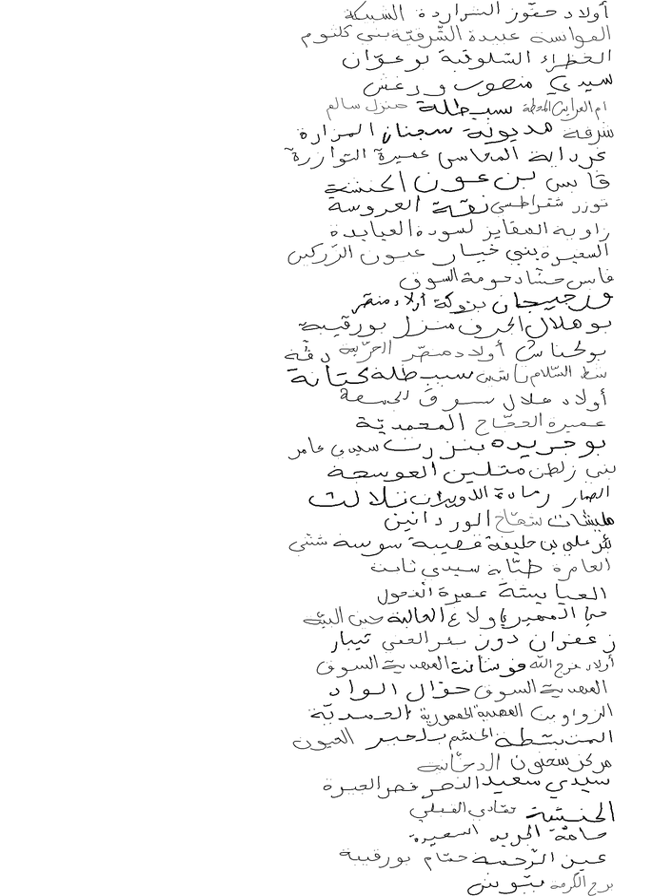 أولاد حفوز الشراردة الشبكة
العوابسة عبيدة الشرقية بني كلثوم
الخظراء السلوقية بوعوان
سيدي منصور ورغش
ام العرايس المحطة سبيطلة منزل سالم
شرفة مديونة سجنان المزارة
غرداية الماسي عميرة التوازرة
قابس بن عون الخنشة
توزر شقراطس نقة العروسة
زاوية المقايز لسودة العبابدة
السعيرة بني خيار عيون الزركين
فاس حشاد حومة السوق
ورجيجان بزوكة أولاد منصر
بوهلال الجرف منزل بورقيبة
بولحناش أولاد منصر الحرية دقة
شط السلام سبيطلة كتانة
أولاد هلال سوق الجمعة
عميرة الحجاج المحمدية
بوجريدة بنزرت سيدي عامر
بني زلطن متلين العوسجة
الصمار رمادة الدويرات تلالت
هبيشات شماخ الوردانين
بئر علي بن خليفة قصيبة سوسة شنني
العامرة سيدي ثابت
العيايشة عميرة الفحول
العالية حسن
زعفران دوز تيبار
أولاد فرج الله فوسانة المهدية السوق
المهدية السوق حوال الواد
الزواوين المهدية الجمهورية الحمدية
المنبسطة الحشم بلخير العيون
مركز سحنون الدخانية
سيدي سعيد النحر قصر العيرة
الخنشة تمادي القبلي
حامة الجريد السعيدة
عين الرحمة حمام بورقيبة
برج الكرمة